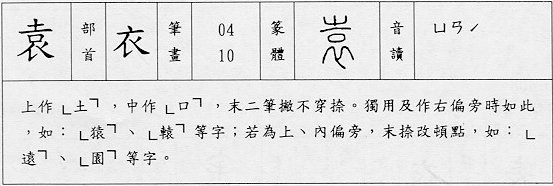 袁 部首 衣 筆畫 04 10 篆體 袁 音讀 ㄩㄢˊ
上作「土」，中作「口」，末二筆撇不穿捺。獨用及作右偏旁時如此
，如：「猿」、「轅」等字；若為上、內偏旁，末捺改頓點，如：「
遠」、「園」等字。